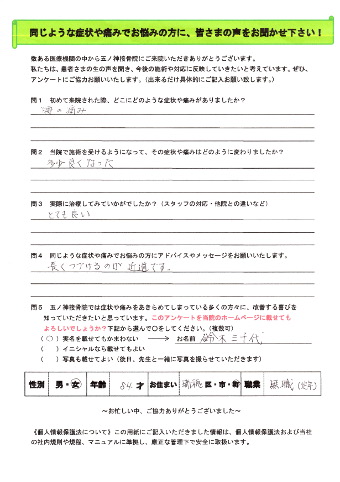 同じような症状や痛みでお悩みの方に、皆さまの声をお聞かせ下さい！
数ある医療機関の中から五ノ神接骨院にご来院いただきありがとうございます。
私たちは、患者さまの生の声を聞き、今後の施術や対応に反映していきたいと考えています。ぜひ、
アンケートにご協力お願いします。（出来るだけ具体的にご記入お願い致します。）
問１ 初めて来院された際、どこにどのような症状や痛みがありましたか？
の痛み
問２ 当院で施術を受けるようになって、その症状や痛みはどのように変わりましたか？
多少良くなった
問３ 実際に治療してみていかがでしたか？（スタッフの対応・他院との違いなど）
とても良い
問４ 同じような症状や痛みでお悩みの方にアドバイスやメッセージをお願いいたします。
長くつづけるのが近道です。
問５ 五ノ神接骨院では症状や痛みをあきらめてしまっている多くの方々に、改善する喜びを
知っていただきたいと思っています。このアンケートを当院のホームページに載せても
よろしいでしょうか？下記から選んで〇をしてください。（複数可）
（〇）実名を載せてもかまわない → お名前 鈴木三千代
（ ）イニシャルなら載せてもよい
（ ）写真も載せてよい（後日、先生と一緒に写真を撮らせていただきます）
性別 男・女 年齢 84 才 お住まい 瑞穂 区・市・町 職業 無職
～お忙しい中、ご協力ありがとうございました～
《個人情報保護法について》この用紙にご記入いただきました情報は、個人情報保護法および当社
の社内規則や規程、マニュアルに準拠し、厳正な管理下で安全に取扱います。